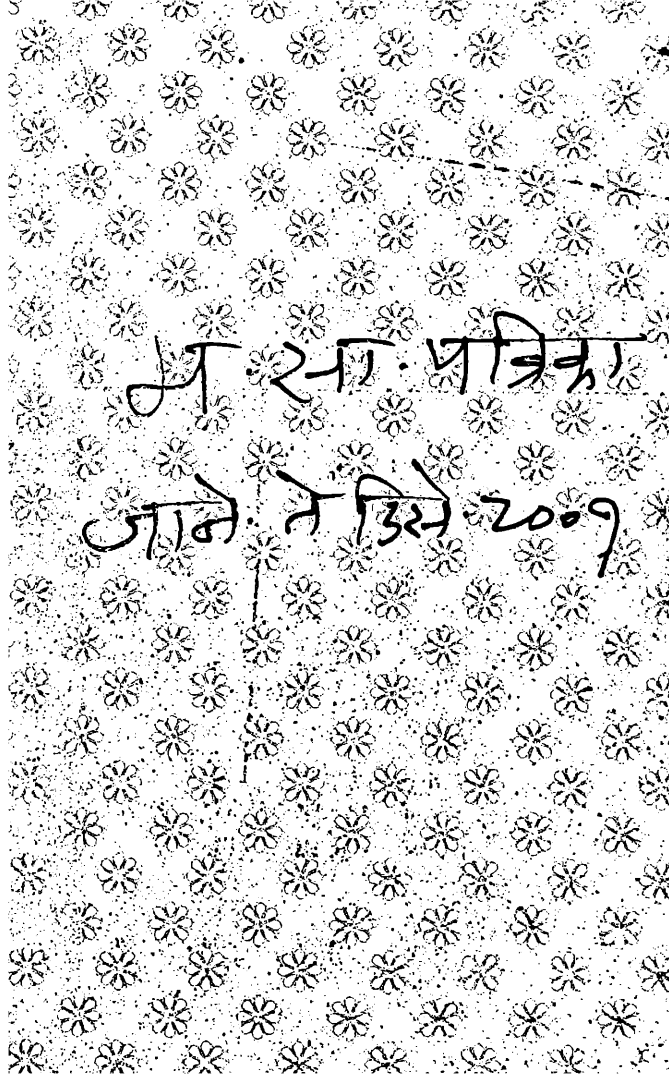 म. सा. पत्रिका
जाने. ते डिसे. २००१